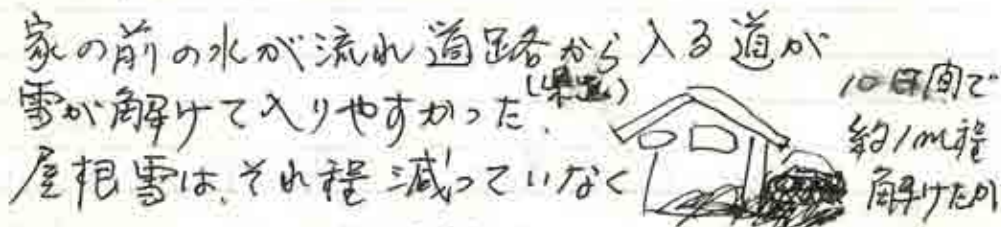 家の前の水が流れ道路から入る道が
(県道)
雪が解けて入りやすかった、
屋根雪は、それ程減っていなく
10日間で
約1m程
解けたか